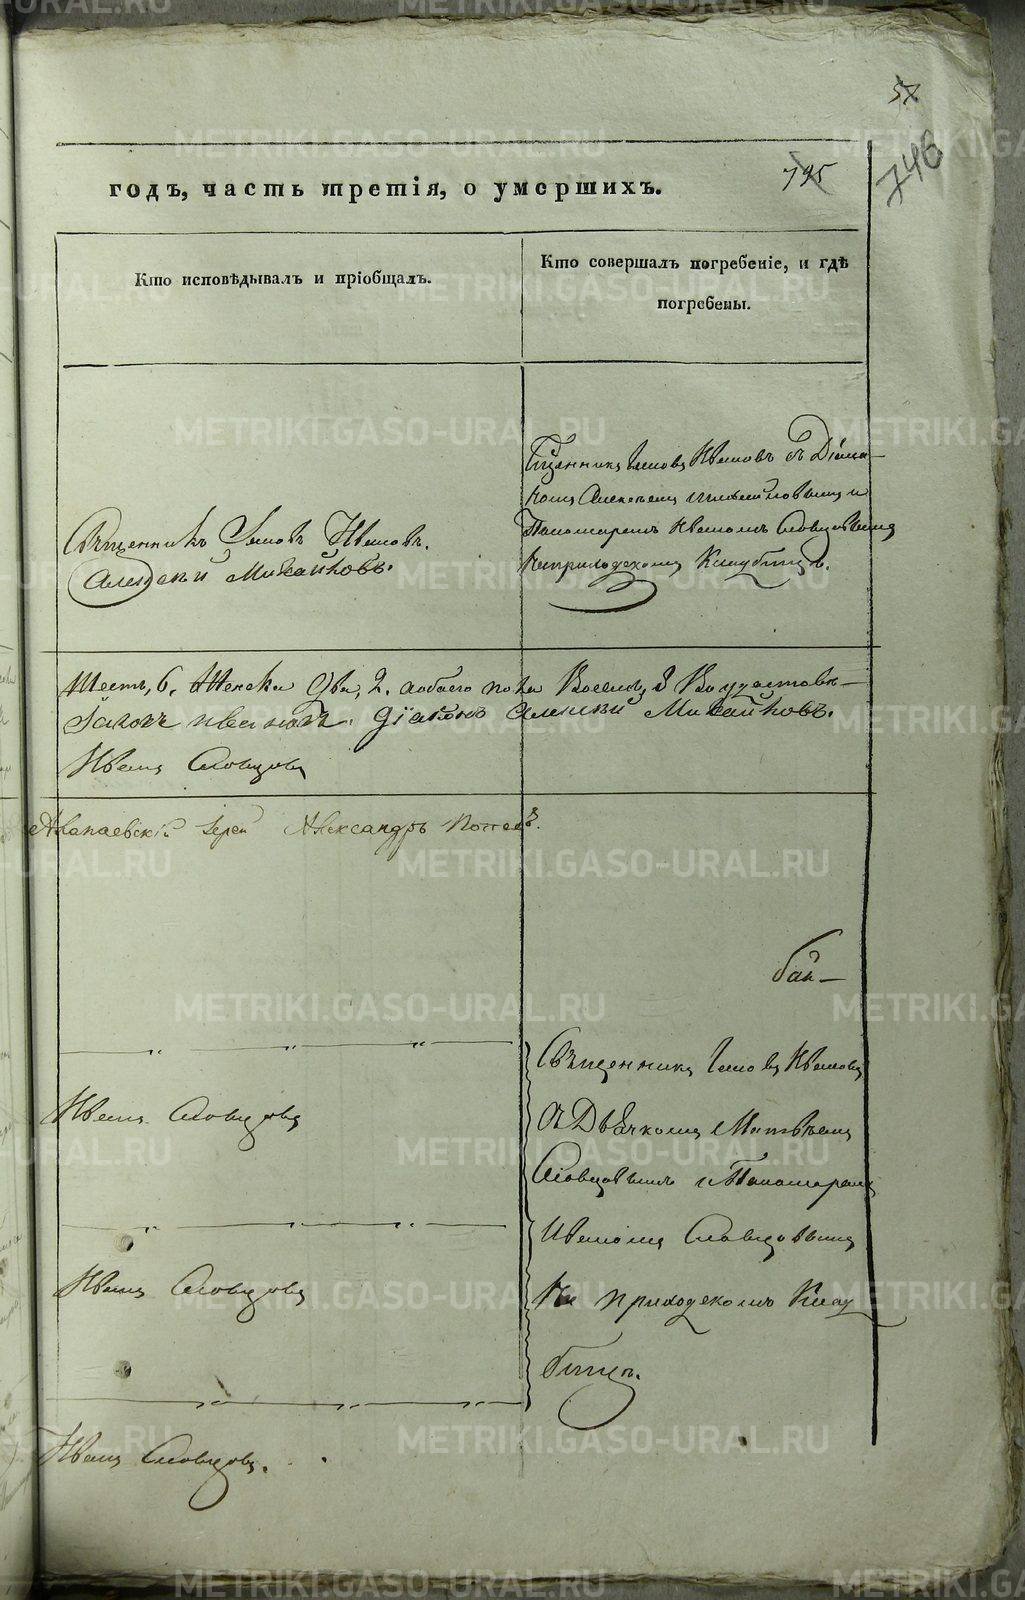 57
746
795
годъ, часть третія, о умершихъ.
Кто исповѣдывалъ и пріобщалъ.
Кто совершалъ погребеніе, и гдѣ
погребены.
Священникъ Іаковъ Ивановъ.
Алексѣй Михайловъ.
Священникъ Іаковъ Ивановъ съ Діа
кономъ Алексѣемъ Михайловымъ и
Пономаремъ Иваномъ Словцовымъ
На приходскомъ Кладбищѣ.
Шесть, 6. Женска Два, 2. обоего пола Восемь, 8
Іаковъ Ивановъ. Діаконъ Алексѣй Михайловъ.
Иванъ Словцовъ
Іерей Александръ Поповъ.
Священникъ Іаковъ Ивановъ
Иванъ Словцовъ
съ Дьячкомъ Матвѣемъ
Словцовымъ и Пономаремъ
Иваномъ Словцовымъ
Иванъ Словцовъ
На приходскомъ Клад
бищѣ.
Иванъ Словцовъ.
METRIKI.GASO-URAL.RU